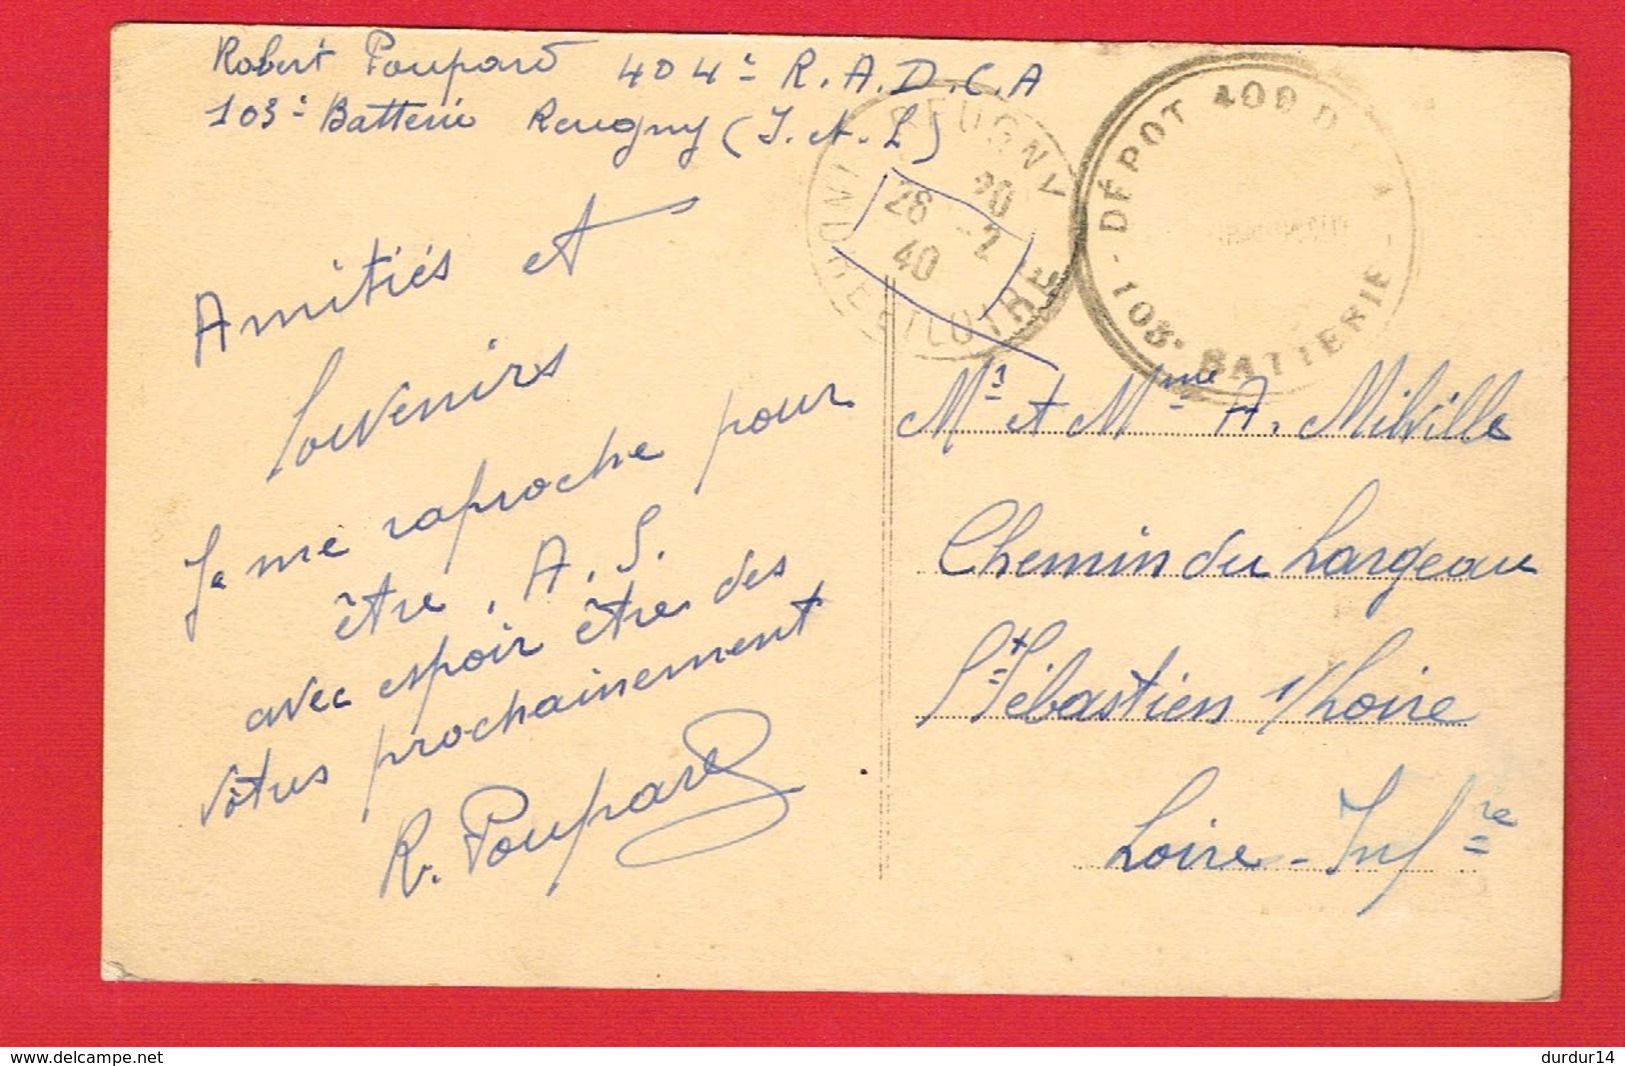 Robert Poupard 404e R.A.D.C.A
103e Batterie Reugny (I.et.L)
REUGNY
20
28 -2
40
INDRE ET LOIRE
DÉPOT 409 D
103e BATTERIE
Amitiés et
Souvenirs
Je me raproche pour
être A.S.
avec espoir être des
vôtres prochainement
R. Poupard
Mr et Mme A. Milville
Chemin du Largeau
St Sébastien s/Loire
Loire-Infre
www.delcampe.net
durdur14